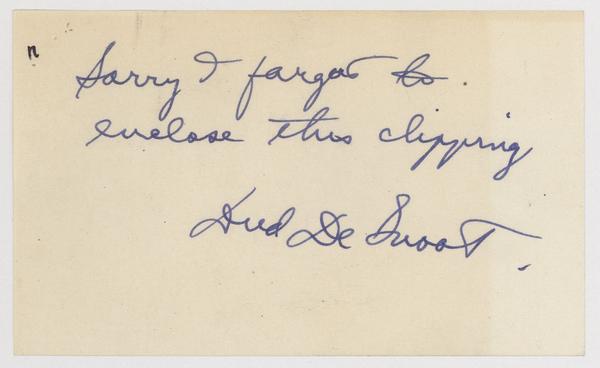 Sorry I forgot to
enclose this clipping
Dud De Groot